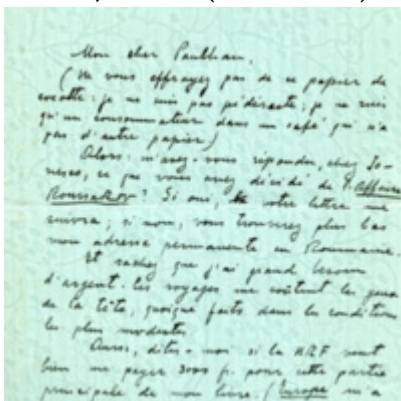 Mon cher Paulhan,
(Ne vous effrayez pas de ce papier de
cocotte : je ne suis pas pédéraste ; je ne suis
qu'un consommateur dans un café qui n'a
pas d'autre papier)
Alors : m'avez-vous répondu, chez Jo-
nesco, ce que vous avez décidé de l'Affaire
Roussakov ? Si oui, votre lettre me
suivra ; si non, vous trouverez plus bas
mon adresse permanente en Roumanie.
Et sachez que j'ai grand besoin
d'argent. Les voyages me coûtent les yeux
de la tête, quoique faits dans les conditions
les plus modestes.
Aussi, dites-moi si la NRF veut
bien me payer 3000 fr. pour cette partie
principale de mon livre. (Europe m'a